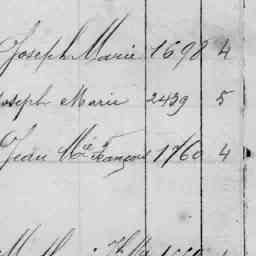 Joseph Marie 1698 4
Joseph Marie 2439 5
Jean Mie François 1760 4